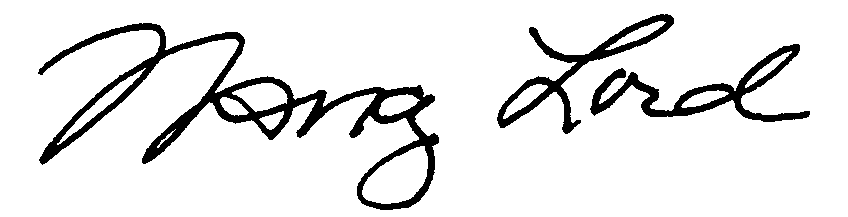 Nancy Lord